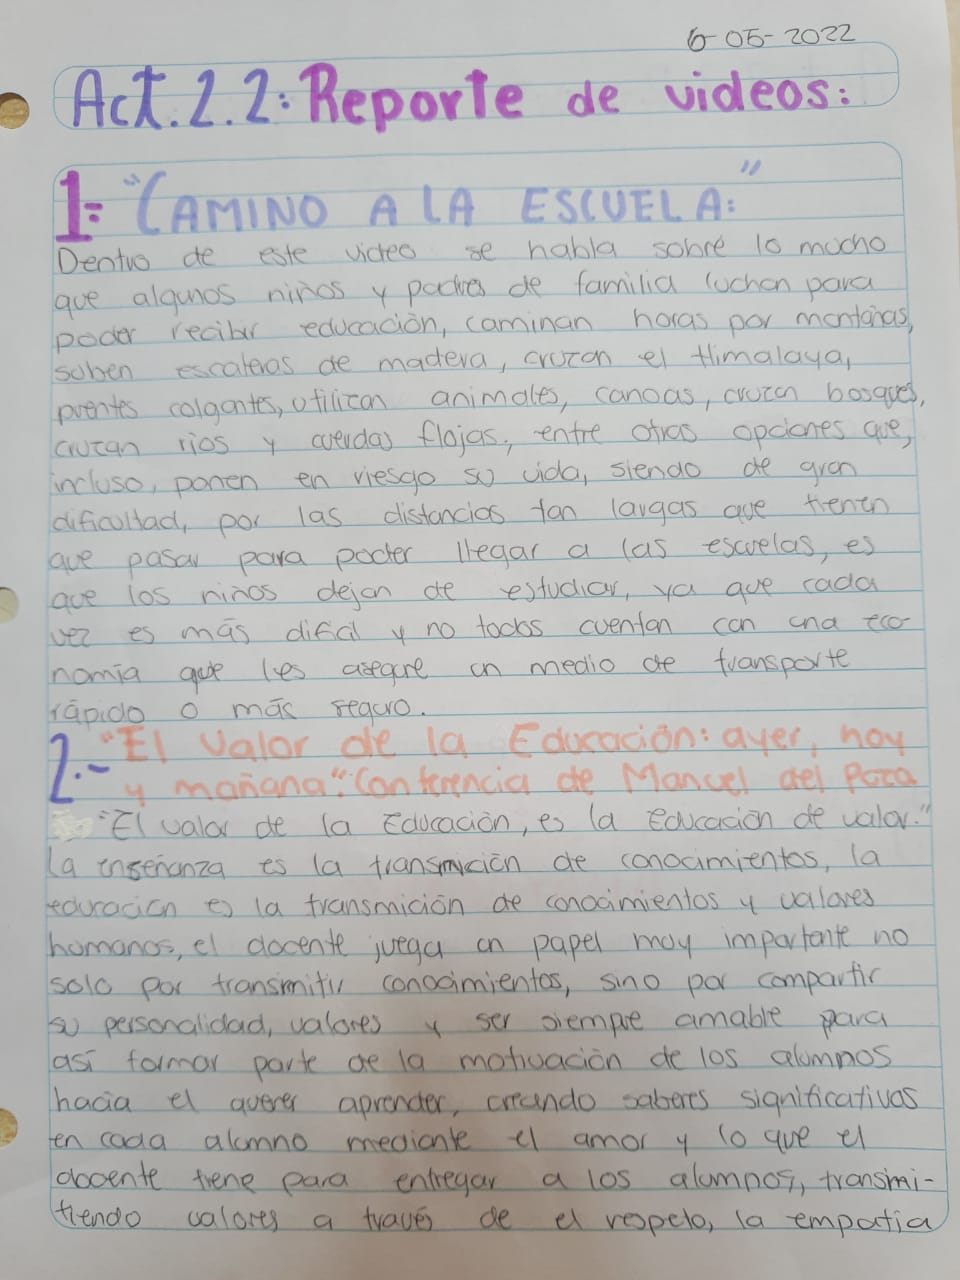 6-05-2022
Act. 2.2: Reporte de videos:
1= "CAMINO A LA ESCUELA:"
Dentro de este video se habla sobre lo mucho
que algunos niños y padres de familia luchan para
poder recibir educación, caminan horas por montañas,
suben escaleras de madera, cruzan el Himalaya,
puentes colgantes, utilizan animales, canoas, cruzan bosques,
cruzan rios y cuerdas flojas, entre otras opciones que,
incluso, ponen en riesgo su vida, siendo de gran
dificultad, por las distancias tan largas que tienen
que pasar para poder llegar a las escuelas, es
que los niños dejan de estudiar, ya que cada
vez es más dificil y no todos cuentan con una eco-
nomía que les asegure un medio de transporte
rápido o más seguro.
2.- "El Valor de la Educación: ayer, hoy
y mañana". Conferencia de Manuel del Pozo
"El valor de la Educación, es la Educación de valor."
La enseñanza es la transmición de conocimientos, la
educación es la transmición de conocimientos y valores
humanos, el docente juega un papel muy importante no
solo por transmitir conocimientos, sino por compartir
su personalidad, valores y ser siempre amable para
así formar parte de la motivación de los alumnos
hacia el querer aprender, creando saberes significativos
en cada alumno mediante el amor y lo que el
docente tiene para entregar a los alumnos, transmi-
tiendo valores a través de el respeto, la empatia